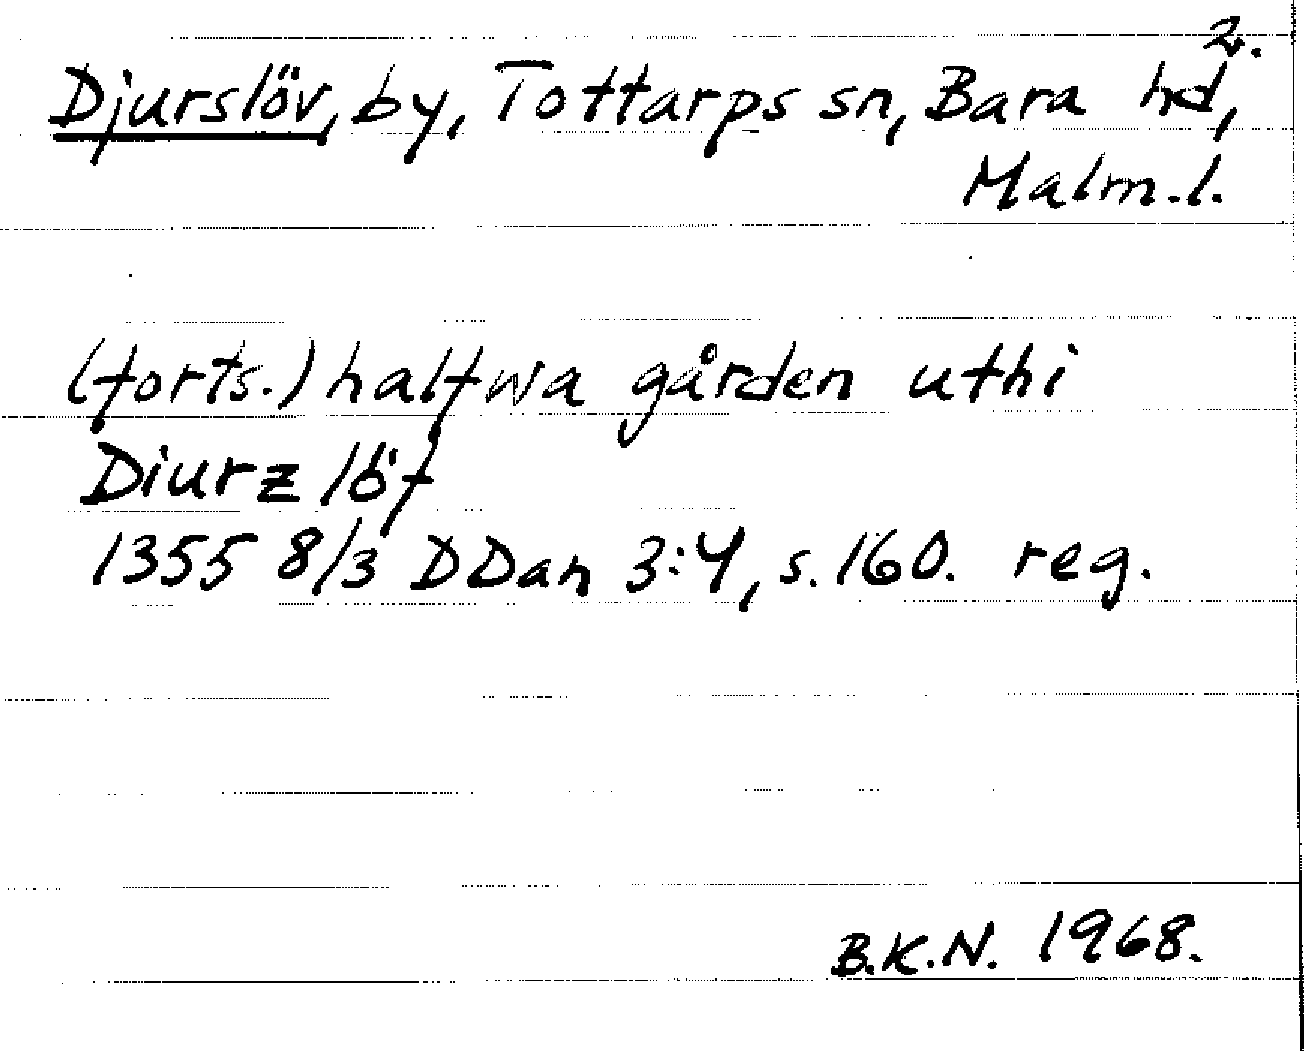 2.
Djurslöv, by, Tottarps sn, Bara hd,
Malm.l.
(forts.) halfwa gården uthi
Diurz löf
1355 8/3 DDan 3:4, s. 160. reg.
B.K.N. 1968.